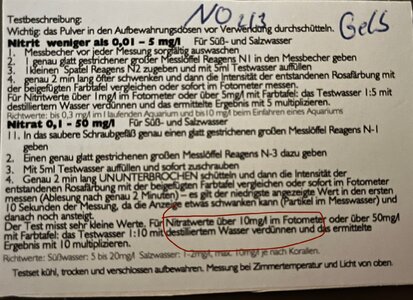 NO 2/3
Gelb
Testbeschreibung:
Wichtig: das Pulver in den Aufbewahrungsdosen vor Verwendung durchschütteln.
Nitrit weniger als 0,01 - 5 mg/l Für Süß- und Salzwasser
1. Messbecher vor jeder Messung sorgfältig auswaschen
2. 1 genau glatt gestrichener großer Messlöffel Reagens N1 in den Messbecher geben
3. 1 kleinen Spatel Reagens N2 zugeben und mit 5ml Testwasser auffüllen
4. genau 2 min lang öfter schwenken und dann die Intensität der entstandenen Rosafärbung mit
der beigefügten Farbtafel vergleichen oder sofort im Fotometer messen.
Für Nitritwerte über 1mg/l im Fotometer oder über 5mg/l mit Farbtafel: das Testwasser 1:5 mit
destilliertem Wasser verdünnen und das ermittelte Ergebnis mit 5 multiplizieren.
Richtwerte: bis 0,3 mg/l im laufenden Aquarium und bis 10 mg/l beim Einfahren eines Aquariums
Nitrat 0,1 - 50 mg/l Für Süß- und Salzwasser
1. In das saubere Schraubgefäß genau einen glatt gestrichenen großen Messlöffel Reagens N-1
geben
2. Einen genau glatt gestrichenen großen Messlöffel Reagens N-3 dazu geben
3. Mit 5ml Testwasser auffüllen und sofort zuschrauben
4. Genau 2 min lang UNUNTERBROCHEN schütteln und dann die Intensität der
entstandenen Rosafärbung mit der beigefügten Farbtafel vergleichen oder sofort im Fotometer
messen (Ablesung nach genau 2 Minuten) - es gilt der niedrigste angezeigte Wert in den ersten
10 Sekunden der Messung, da die Anzeige etwas schwanken kann (Partikel im Messwasser) und
danach noch ansteigt.
Der Test misst sehr kleine Werte. Für Nitratwerte über 10mg/l im Fotometer oder über 50mg/l
mit Farbtafel: das Testwasser 1:10 mit destilliertem Wasser verdünnen und das ermittelte
Ergebnis mit 10 multiplizieren.
Richtwerte: Süßwasser: 5 bis 20mg/l Salzwasser: 1-2mg/l, max. 10mg/l je nach Korallen.
Testset kühl, trocken und verschlossen aufbewahren. Messung bei Zimmertemperatur und Licht von oben.